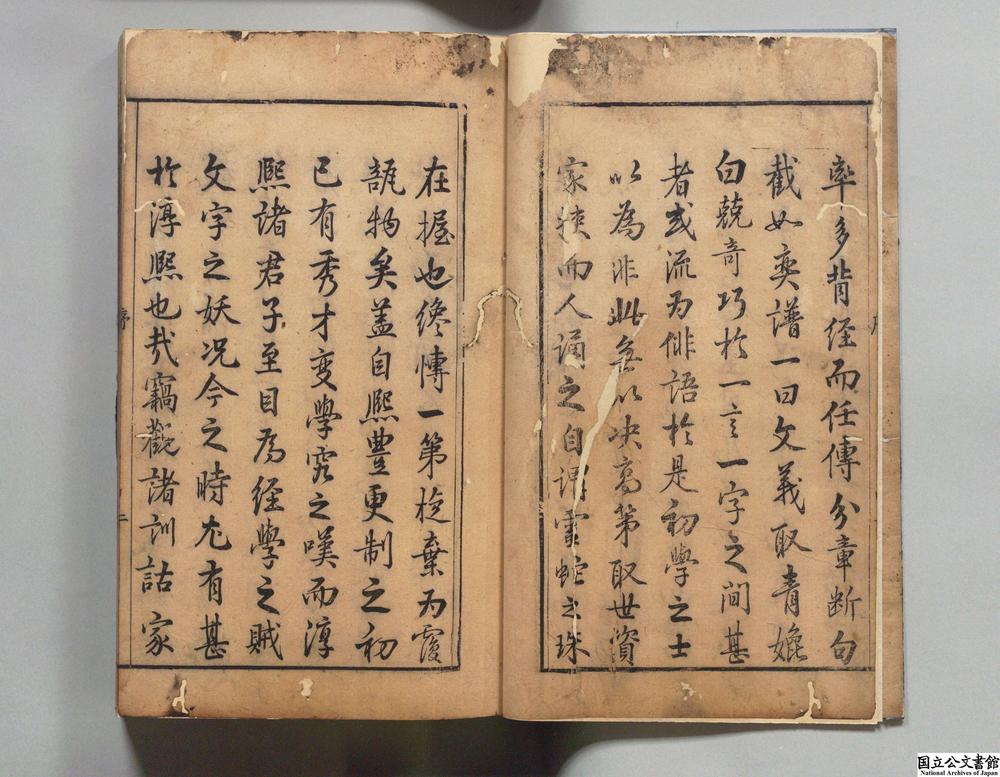 率多背經而任傳分章斷句
截如奕譜一曰文義取青媲
白競奇巧於一言一字之間甚
者或流為俳語於是初學之士
以為非此無以決高第取世資
家挾而人誦之自謂靈蛇之珠
在握也纔博一第旋棄為覆
瓿物矣蓋自熙豐更制之初
已有秀才变學究之嘆而淳
熙諸君子至目為經學之賊
文字之妖况今之時尤有甚
於淳熙也哉竊觀諸訓詁家
序
二
国立公文書館
National Archives of Japan